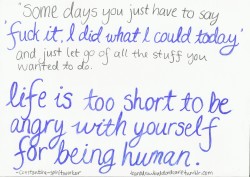 'Some days you just have to say
'fuck it, I did what I could today'
and just let go of all the stuff you
wanted to do.
life is too short to be
angry with yourself
for being human.